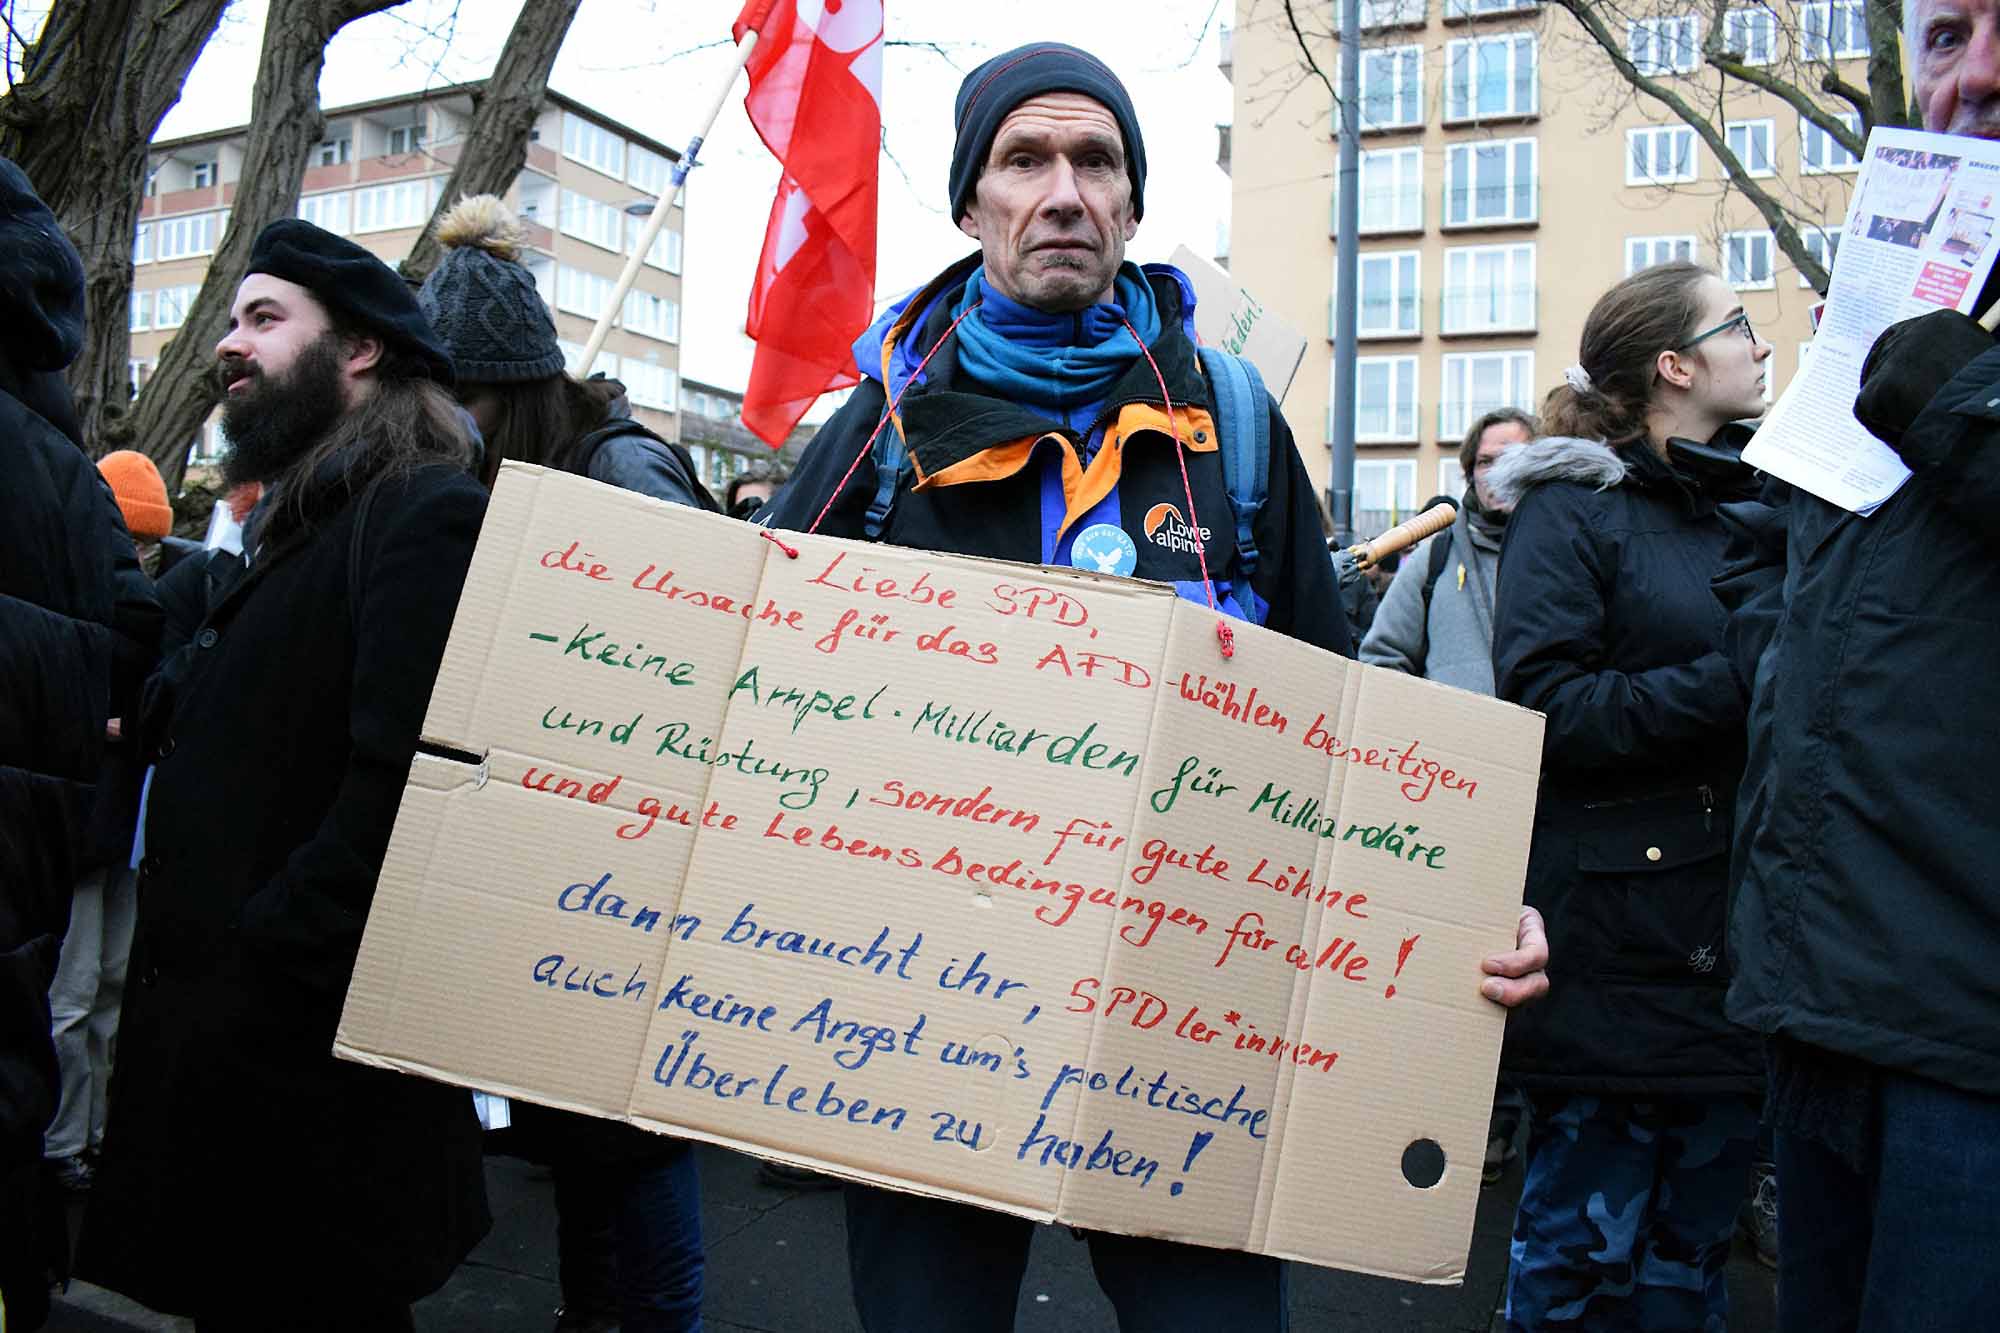 Liebe SPD,
die Ursache für das AFD-Wählen beseitigen
- Keine Ampel-Milliarden für Milliardäre
und Rüstung, sondern für gute Löhne
und gute Lebensbedingungen für alle!
dann braucht ihr, SPDler*innen
auch keine Angst um's politische
Überleben zu haben!
Lowe
alpine
ieden!